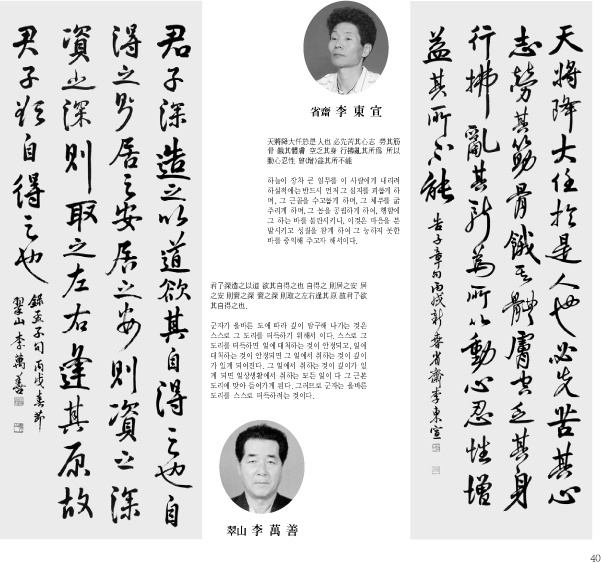 天將降大任於是人也必先苦其心
志勞其筋骨餓其體膚空乏其身
行拂亂其所為所以動心忍性增
益其所不能
告子章句丙戌新春省齋李東宣
省齋 李東宣
天將降大任於是人也 必先苦其心志 勞其筋
骨 餓其體膚 空乏其身 行拂亂其所爲 所以
動心忍性 曾(增)益其所不能
하늘이 장차 큰 임무를 이 사람에게 내리려
하실적에는 반드시 먼저 그 심지를 괴롭게 하
며, 그 근골을 수고롭게 하며, 그 체부를 굶
주리게 하며, 그 몸을 공핍하게 하여, 행함에
그 하는 바를 불란시키나, 이것은 마음을 분
발시키고 성질을 참게 하여 그 능하지 못한
바를 증익해 주고자 해서이다.
君子深造之以道 欲其自得之也 自得之 則居之安 居
之安 則資之深 資之深 則取之左右逢其原 故君子欲
其自得之也.
군자가 올바른 도에 따라 깊이 탐구해 나가는 것은
스스로 그 도리를 터득하기 위해서 이다. 스스로 그
도리를 터득하면 일에 대처하는 것이 안정되고, 일에
대처하는 것이 안정되면 그 일에서 취하는 것이 깊이
가 있게 되어진다. 그 일에서 취하는 것이 깊이가 있
게 되면 일상생활에서 취하는 모든 일이 다 그 근본
도리에 맞아 들어가게 된다. 그러므로 군자는 올바른
도리를 스스로 터득하려는 것이다.
翠山 李萬善
君子深造之以道欲其自得之也自
得之則居之安居之安則資之深
資之深則取之左右逢其原故
君子欲自得之也
錄孟子句丙戌春節
翠山李萬善
40